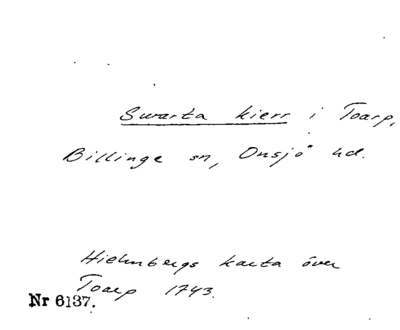 Swarta kierr i Toarp,
Billinge sn, Onsjö hd.
Hielmbergs karta över
Toarp 1743.
Nr 6137.